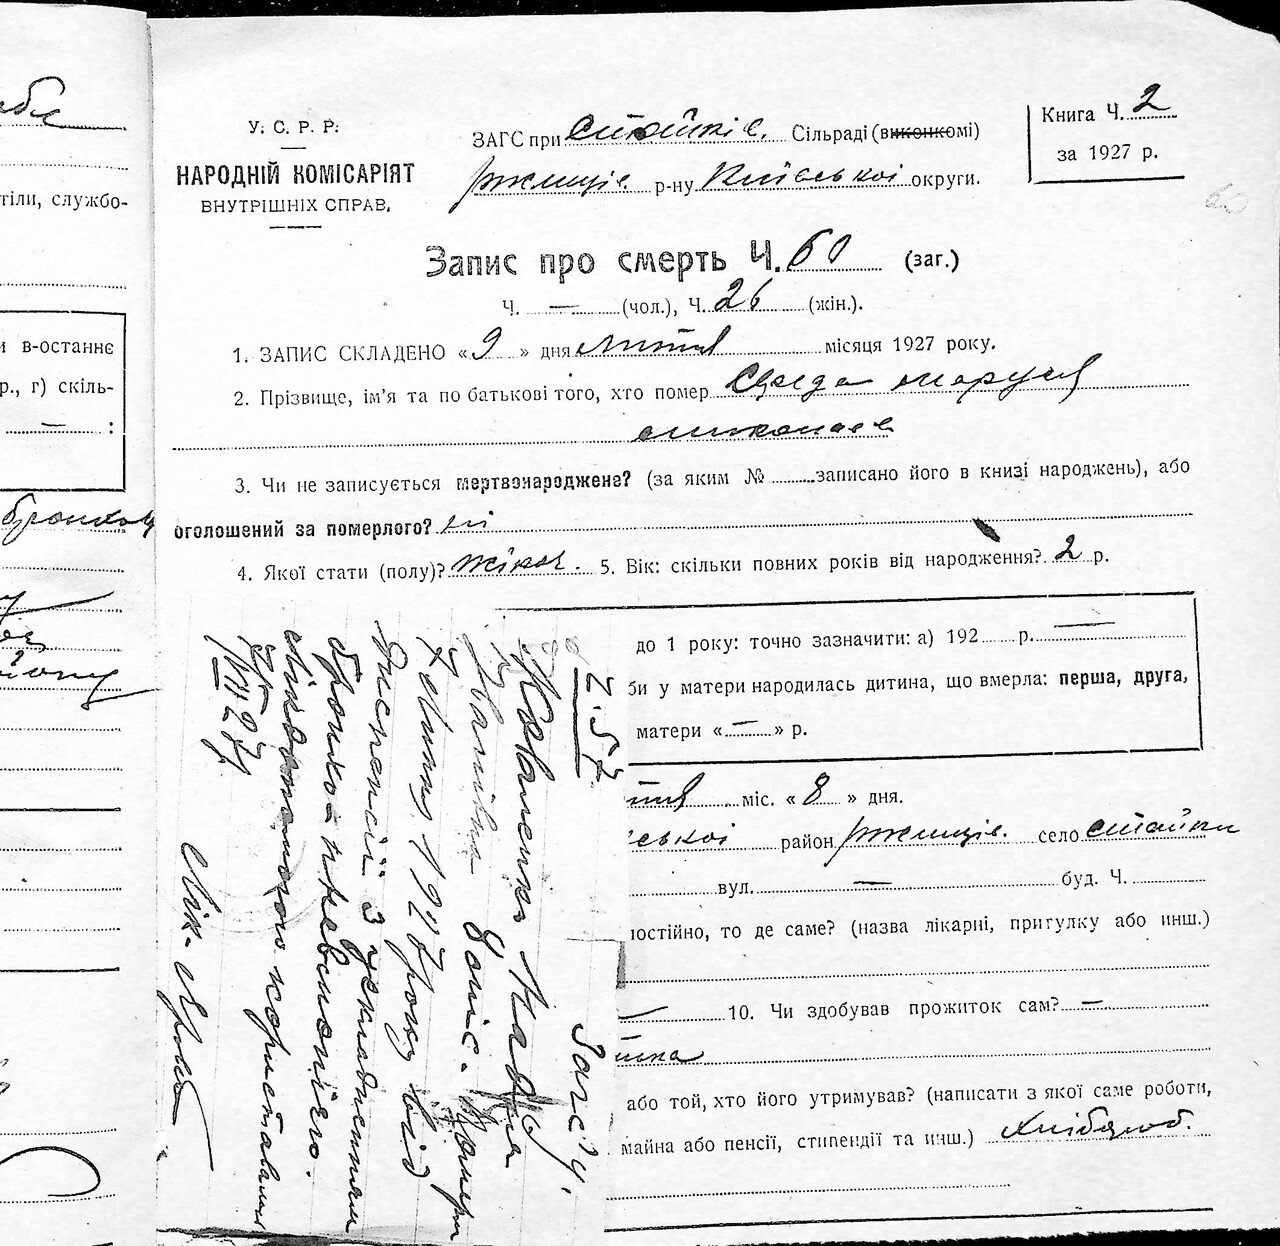 У. С. Р. Р.
НАРОДНІЙ КОМІСАРІЯТ
ВНУТРІШНІХ СПРАВ.
ЗАГС при Стайків. Сільраді (виконкомі)
Ржищів. р-ну Київської округи.
Книга Ч. 2
за 1927 р.
60
Запис про смерть Ч. 60 (заг.)
Ч. — (чол.), Ч. 26 (жін.).
1. ЗАПИС СКЛАДЕНО «9» дня лютня місяця 1927 року.
2. Прізвище, ім'я та по батькові того, хто помер Середа Маруся
Миколаєв
3. Чи не записується мертвонароджене? (за яким № записано його в книзі народжень), або
оголошений за померлого? ні
4. Якої стати (полу)? жіноч. 5. Вік: скільки повних років від народження? 2 р.
до 1 року: точно зазначити: а) 192 р. —
би у матери народилась дитина, що вмерла: перша, друга,
матери «—» р.
міс. «8» дня.
ської район Ржищів. село Стайки
вул. — буд. Ч.
постійно, то де саме? (назва лікарні, пригулку або инш.)
— 10. Чи здобував прожиток сам? —
або той, хто його утримував? (написати з якої саме роботи,
майна або пенсії, стипендії та инш.) Хлібороб.
тіли, службо-
и в-останнє
р., г) скіль-
— :
Загс'у.
Коваленко Надія
Іванівна
1927 року від
диспепсії з ускладненням
бронхо-пневмонією.
користування
VII 27
Лік.